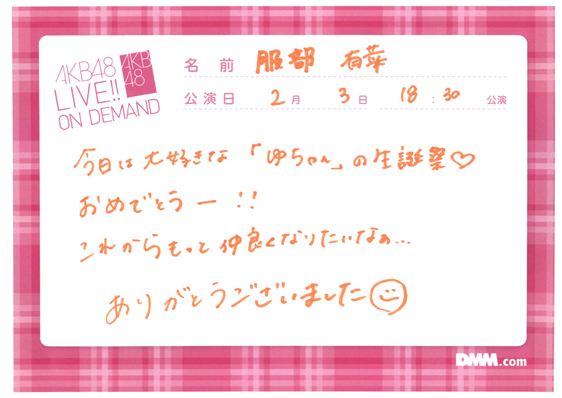 AKB48
LIVE!!
ON DEMAND
AKB
48
名前 服部 有菜
公演日 2月 3日 18:30 公演
今日は大好きな「ゆちゃん」の生誕祭♡
おめでとうー!!
これからもっと仲良くなりたいなぁ…
ありがとうございました
DMM.com